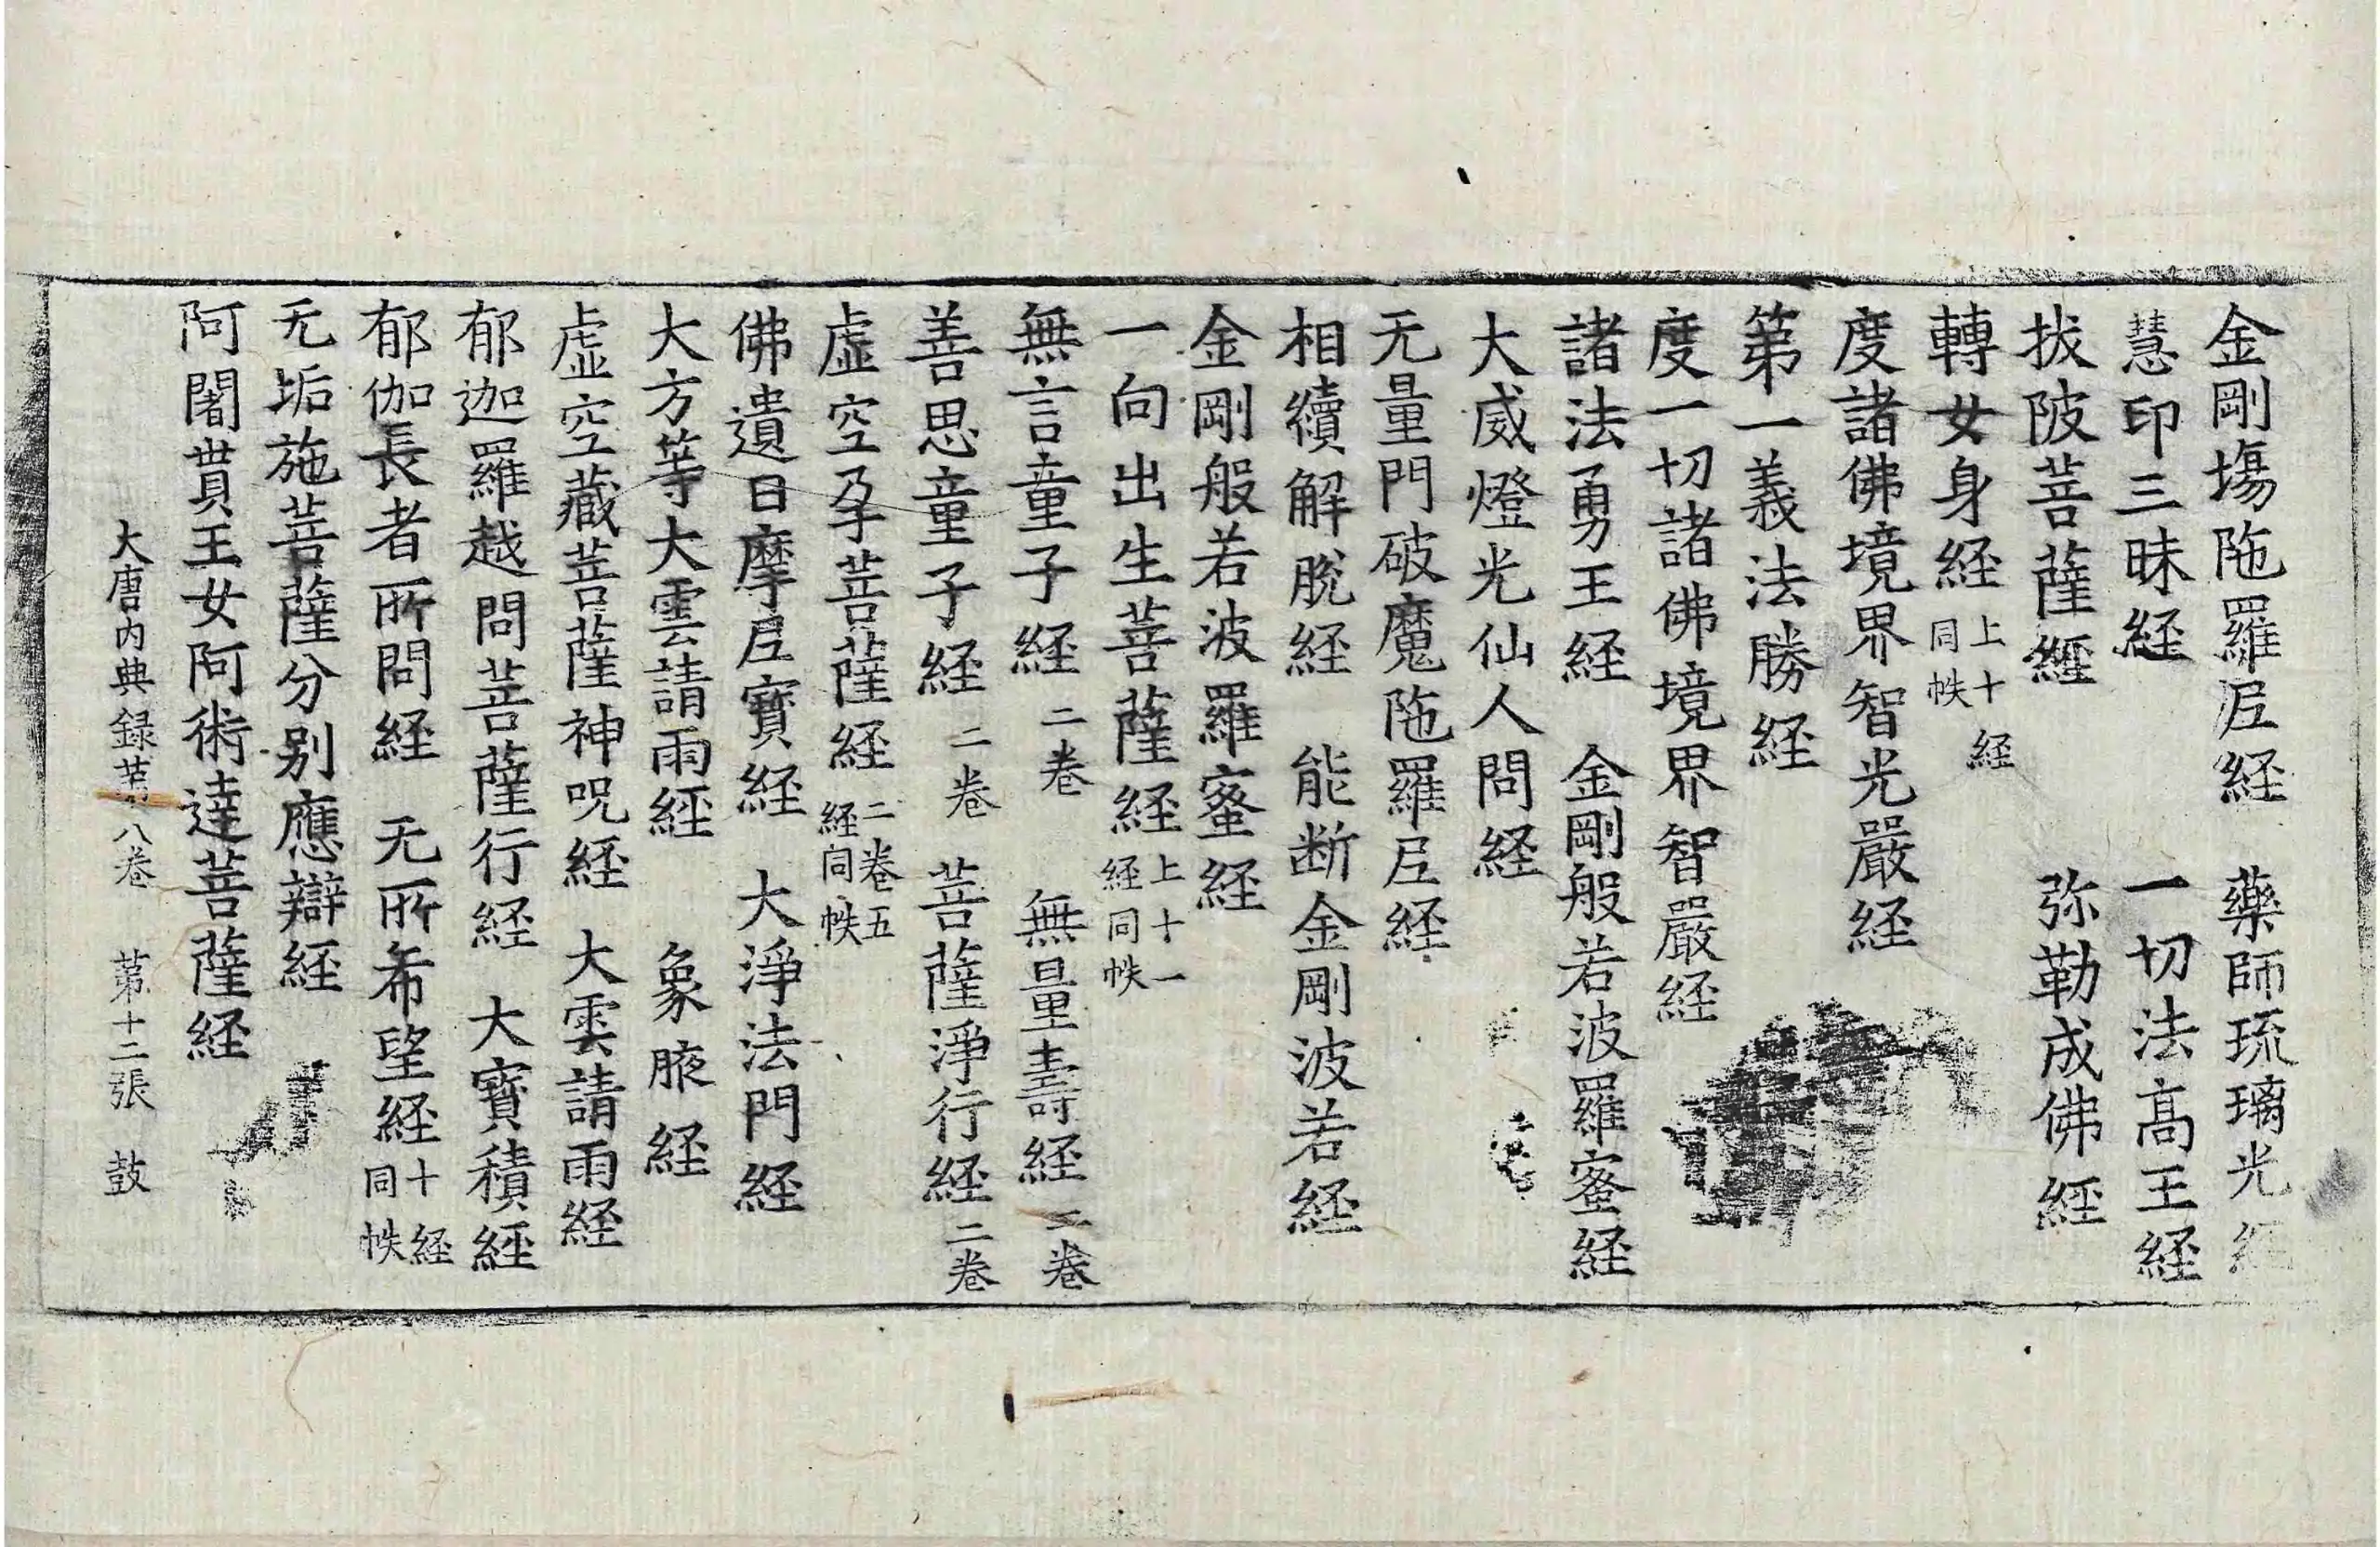 金剛場陁羅尼経　藥師琉璃光経
慧印三昧経　一切法高王経
拔陂菩薩經　弥勒成佛經
轉女身経 上十経同帙
度諸佛境界智光嚴経
第一義法勝経
度一切諸佛境界智嚴経
諸法勇王経　金剛般若波羅蜜経
大威燈光仙人問経
无量門破魔陁羅尼経
相續解脫経　能断金剛波若経
金剛般若波羅蜜経
一向出生菩薩経 上十一経同帙
無言童子経 二卷　無量壽経 二卷
善思童子経 二卷　菩薩淨行経 二卷
虛空孕菩薩経 二卷五経同帙
佛遺日摩尼寶経　大淨法門経
大方等大雲請雨經　象腋経
虛空藏菩薩神呪経　大雲請雨経
郁迦羅越問菩薩行経　大寶積經
郁伽長者所問経　无所希望経 十経同帙
无垢施菩薩分别應辯経
阿闍貰王女阿術達菩薩経
大唐内典録第八卷　第十二張　鼓